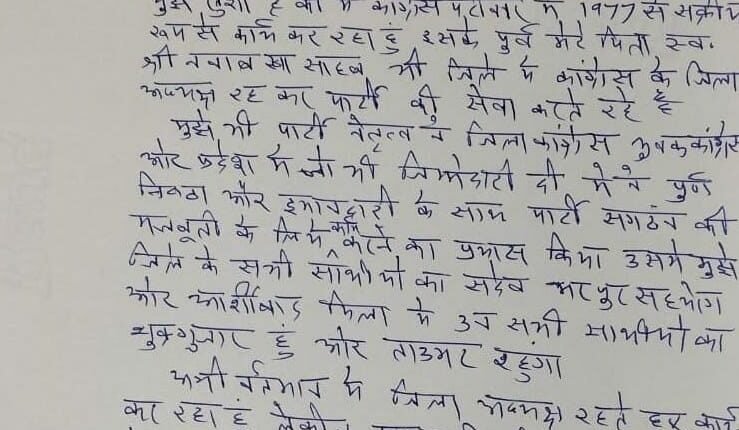 मुझे खुशी है की मै कांग्रेस परिवार मे 1977 से सक्रीय
रूप से कार्य कर रहा हुं इसके पुर्व मेरे पिता स्व.
श्री नवाब खा साहब भी जिले मे कांग्रेस के जिला
अध्यक्ष रह कर पार्टी की सेवा करते रहे है
मुझे भी पार्टी नेतृत्व ने जिला कांग्रेस युवक कांग्रेस
ओर प्रदेश मे जो भी जिम्मेदारी दी मेने पुर्ण
निष्ठा और इमानदारी के साथ पार्टी सगठंन की
मजबूती के लिये कार्य करने का प्रयास किया उसमे मुझे
जिले के सभी साथीयो का सदैव भरपुर सहयोग
ओर आर्शीवाद मिला मे उन सभी साथीयो का
शुक्रगुजार हुं ओर ताउमर रहुंगा
अभी वर्तमान मे जिला अध्यक्ष रहते हुए कार्य
कर रहा हुं लेकीन